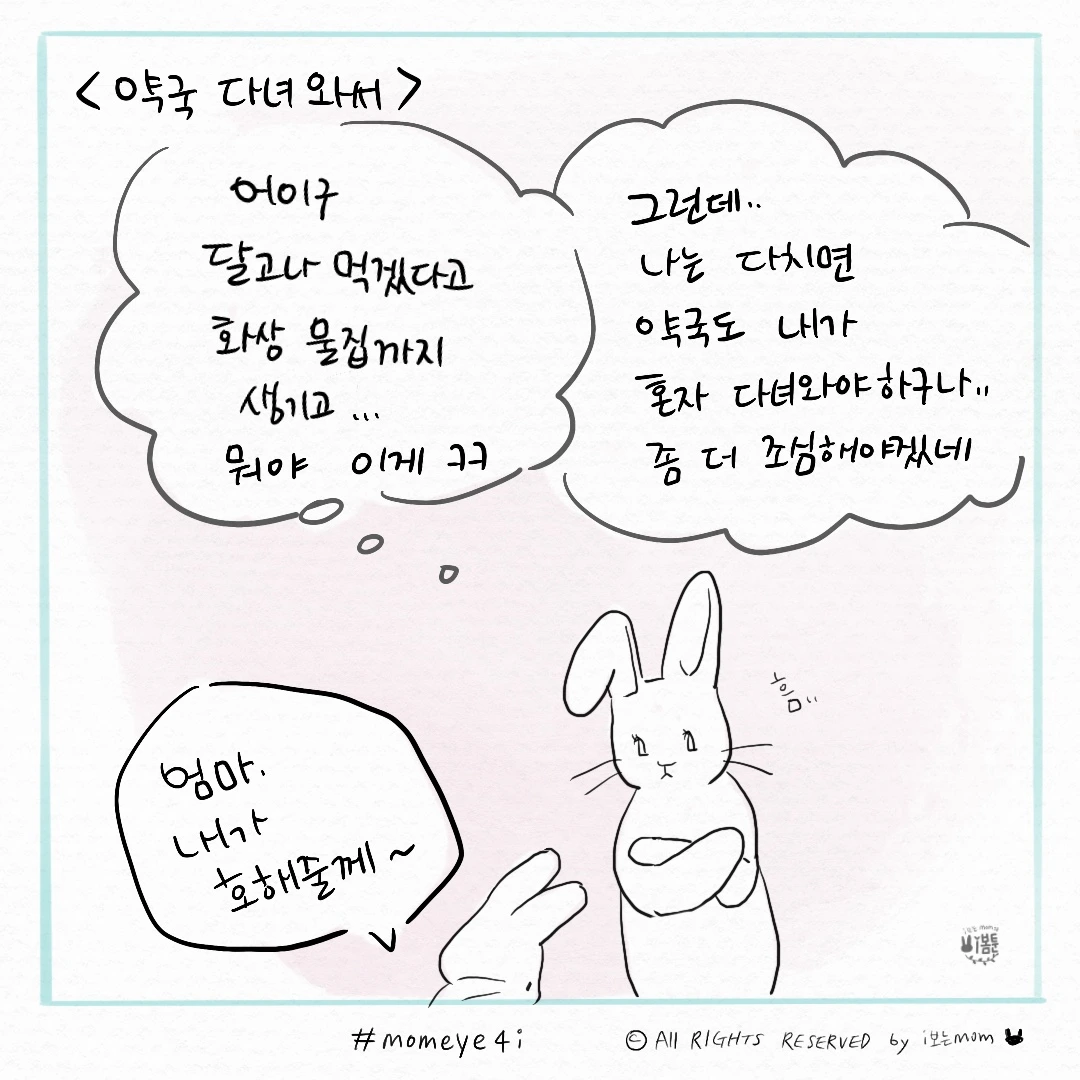 <약국 다녀와써>
어이구
달고나 먹겠다고
화상 물집까지
생기고 ...
뭐야 이게 ㅋㅋ
그런데..
나는 다치면
약국도 내가
혼자 다녀와야하구나..
좀 더 조심해야겠네
흠..
엄마.
내가
호해줄께~
i보는 mom의
i봄툰
#momeye4i
© All RIGHTS RESERVED by i보는mom